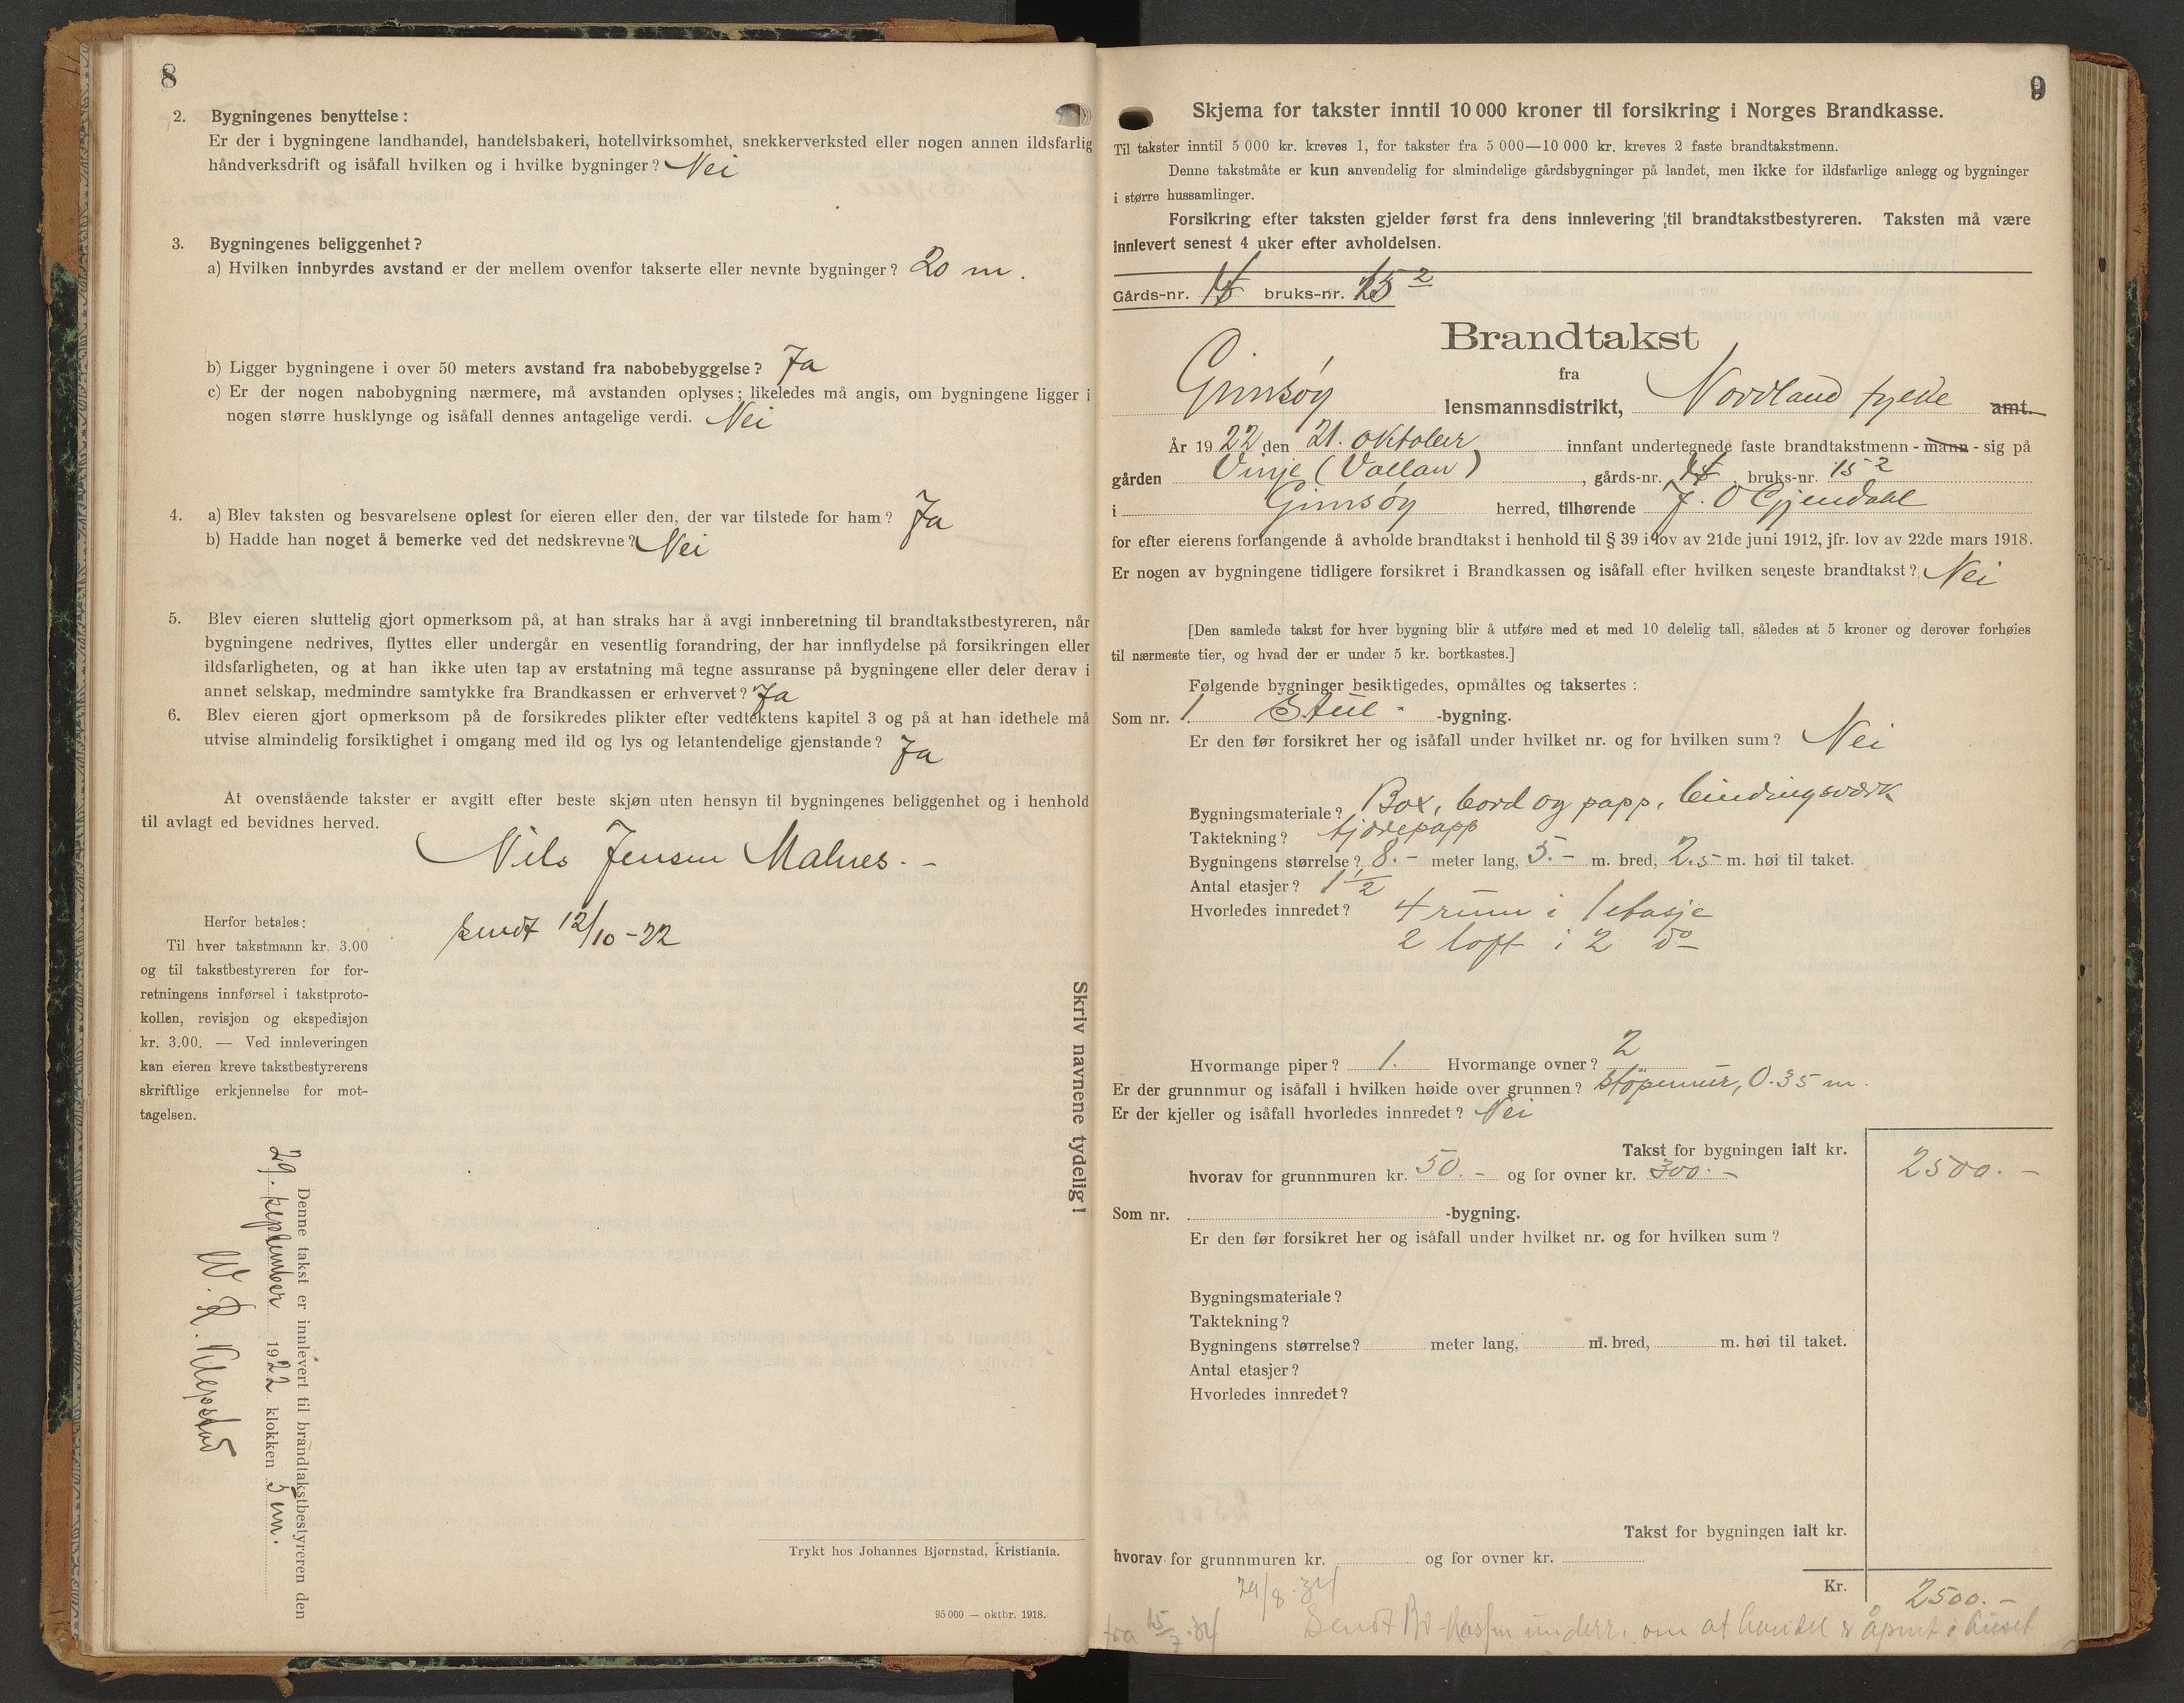 8
2. Bygningenes benyttelse:
Er der i bygningene landhandel, handelsbakeri, hotellvirksomhet, snekkerverksted eller nogen annen ildsfarlig
håndverksdrift og isåfall hvilken og i hvilke bygninger? Nei
3. Bygningenes beliggenhet?
a) Hvilken innbyrdes avstand er der mellem ovenfor takserte eller nevnte bygninger? 20 m.
b) Ligger bygningene i over 50 meters avstand fra nabobebyggelse? Ja
c) Er der nogen nabobygning nærmere, må avstanden oplyses; likeledes må angis, om bygningene ligger i
nogen større husklynge og isåfall dennes antagelige verdi. Nei
4. a) Blev taksten og besvarelsene oplest for eieren eller den, der var tilstede for ham? Ja
b) Hadde han noget å bemerke ved det nedskrevne? Nei
5. Blev eieren sluttelig gjort opmerksom på, at han straks har å avgi innberetning til brandtakstbestyreren, når
bygningene nedrives, flyttes eller undergår en vesentlig forandring, der har innflydelse på forsikringen eller
ildsfarligheten, og at han ikke uten tap av erstatning må tegne assuranse på bygningene eller deler derav i
annet selskap, medmindre samtykke fra Brandkassen er erhvervet? Ja
6. Blev eieren gjort opmerksom på de forsikredes plikter efter vedtektens kapitel 3 og på at han idethele må
utvise almindelig forsiktighet i omgang med ild og lys og letantendelige gjenstande? Ja
At ovenstående takster er avgitt efter beste skjøn uten hensyn til bygningenes beliggenhet og i henhold
til avlagt ed bevidnes herved.
Nils Jensen Malnes. -
sendt 12/10-22
Herfor betales:
Til hver takstmann kr. 3.00
og til takstbestyreren for for-
retningens innførsel i takstproto-
kollen, revisjon og ekspedisjon
kr. 3.00. — Ved innleveringen
kan eieren kreve takstbestyrerens
skriftlige erkjennelse for mot-
tagelsen.
Denne takst er innlevert til brandtakstbestyreren den
29. september 1922 klokken 5 em.
W. R. Klepstad
Skriv navnene tydelig!
Trykt hos Johannes Bjørnstad, Kristiania.
95 000 — oktbr. 1918.
9
Skjema for takster inntil 10 000 kroner til forsikring i Norges Brandkasse.
Til takster inntil 5 000 kr. kreves 1, for takster fra 5 000—10 000 kr. kreves 2 faste brandtakstmenn.
Denne takstmåte er kun anvendelig for almindelige gårdsbygninger på landet, men ikke for ildsfarlige anlegg og bygninger
i større hussamlinger.
Forsikring efter taksten gjelder først fra dens innlevering til brandtakstbestyreren. Taksten må være
innlevert senest 4 uker efter avholdelsen.
Gårds-nr. bruks-nr. 15 2
Brandtakst
fra
Gimsøy lensmannsdistrikt, Nordland fylke amt.
År 1922 den 21. oktober innfant undertegnede faste brandtakstmenn - mann - sig på
gården Vinje (Vollan), gårds-nr. bruks-nr. 15 2
i Gimsøy herred, tilhørende J. O Gjendahl
for efter eierens forlangende å avholde brandtakst i henhold til § 39 i lov av 21de juni 1912, jfr. lov av 22de mars 1918.
Er nogen av bygningene tidligere forsikret i Brandkassen og isåfall efter hvilken seneste brandtakst? Nei
[Den samlede takst for hver bygning blir å utføre med et med 10 delelig tall, således at 5 kroner og derover forhøies
til nærmeste tier, og hvad der er under 5 kr. bortkastes.]
Følgende bygninger besiktigedes, opmåltes og taksertes:
Som nr. 1 Stue -bygning.
Er den før forsikret her og isåfall under hvilket nr. og for hvilken sum? Nei
Bygningsmateriale? Box, bord og papp, bindingsverk
Taktekning? tjærepapp
Bygningens størrelse? 8.- meter lang, 5.- m. bred, 2.5 m. høi til taket.
Antal etasjer? 1 1/2
Hvorledes innredet? 4 rum i 1 etasje
2 loft i 2 do
Hvormange piper? 1. Hvormange ovner? 2
Er der grunnmur og isåfall i hvilken høide over grunnen? støpemur, 0.35 m.
Er der kjeller og isåfall hvorledes innredet? Nei
Takst for bygningen ialt kr. 2500.-
hvorav for grunnmuren kr. 50.- og for ovner kr. 300.-
Som nr. -bygning.
Er den før forsikret her og isåfall under hvilket nr. og for hvilken sum?
Bygningsmateriale?
Taktekning?
Bygningens størrelse? meter lang, m. bred, m. høi til taket.
Antal etasjer?
Hvorledes innredet?
Takst for bygningen ialt kr.
hvorav for grunnmuren kr. og for ovner kr.
Kr. 2500.-
29/8-34
Sendt Br-kassen underr. om at handel er åpnet i huset
fra 15/7-34